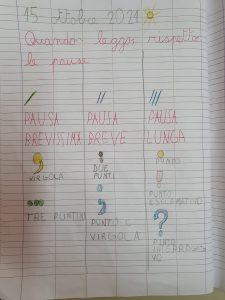 15 ottobre 2021
Quando leggo, rispetto
le pause
/ // ///
PAUSA PAUSA PAUSA
BREVISSIMA BREVE LUNGA
, : .
VIRGOLA DUE PUNTI PUNTO
... ; !
TRE PUNTINI PUNTO E VIRGOLA PUNTO ESCLAMATIVO
?
PUNTO INTERROGATIVO